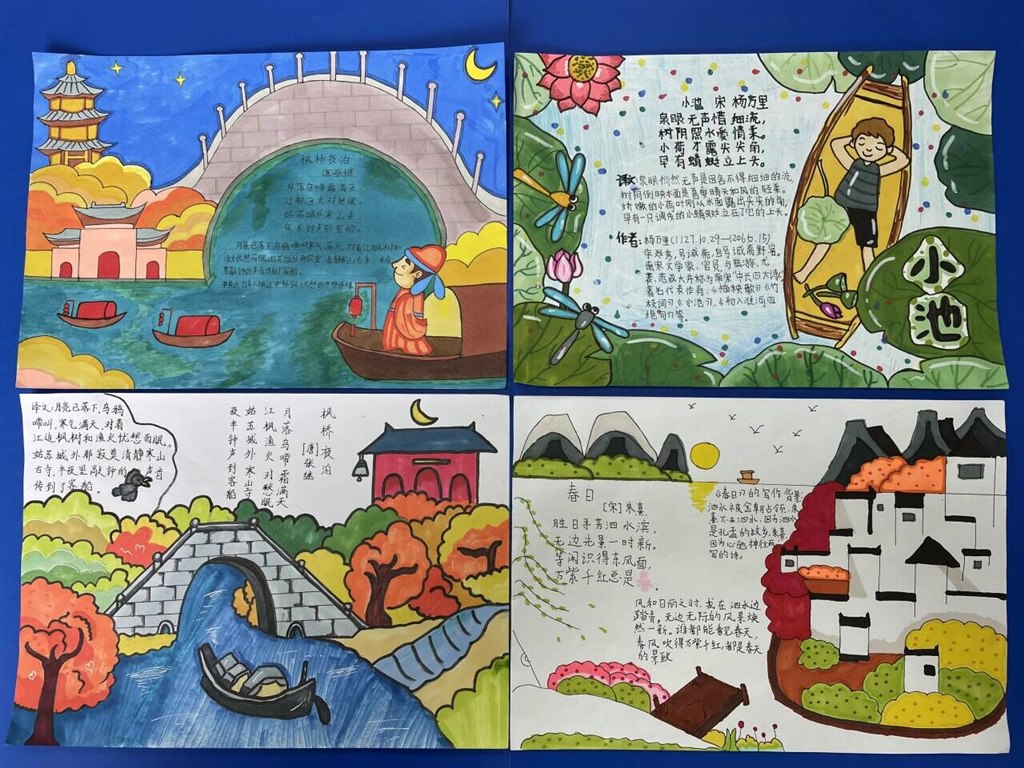 枫桥夜泊
[唐]张继
月落乌啼霜满天,
江枫渔火对愁眠。
姑苏城外寒山寺
夜半钟声到客船。
小池 宋 杨万里
泉眼无声惜细流,
树阴照水爱晴柔。
小荷才露尖尖角,
早有蜻蜓立上头。
泉眼悄然无声是因舍不得细细的流,
树阴倒映水面是喜爱晴天和风的轻柔。
娇嫩的小荷叶刚从水面露出尖尖的角,
早有一只调皮的小蜻蜓立在了它的上头。
作者:杨万里(1127.10.29—1206.6.15)
字廷秀,号诚斋,自号诚斋野客。
南宋文学家、官员,与陆游、尤
袤、范成大并称为南宋“中兴四大诗人”
著名代表作有:《插秧歌》《竹
枝词》《小池》《初入淮河四
绝句》等。
小池
译文:月亮已落下,乌鸦
啼叫,寒气满天,对着
江边枫树和渔火忧愁而眠。
姑苏城外那寂寞清静寒山
古寺,半夜里敲钟的声音
传到了客船。
枫桥夜泊
[唐]张继
月落乌啼霜满天
江枫渔火对愁眠
姑苏城外寒山寺
夜半钟声到客船
春日
[宋]朱熹
胜日寻芳泗水滨,
无边光景一时新。
等闲识得东风面,
万紫千红总是 .
《春日》的写作背景
泗水被金朝占领,朱
熹不去泗水,因为泗水
是孔孟的故乡,朱熹
因为心驰神往而
写的诗。
风和日丽之时,我在泗水边
踏青。无边无际的风景焕
然一新。谁都能看见春天,
春风吹得万紫千红,都是春天
的景致